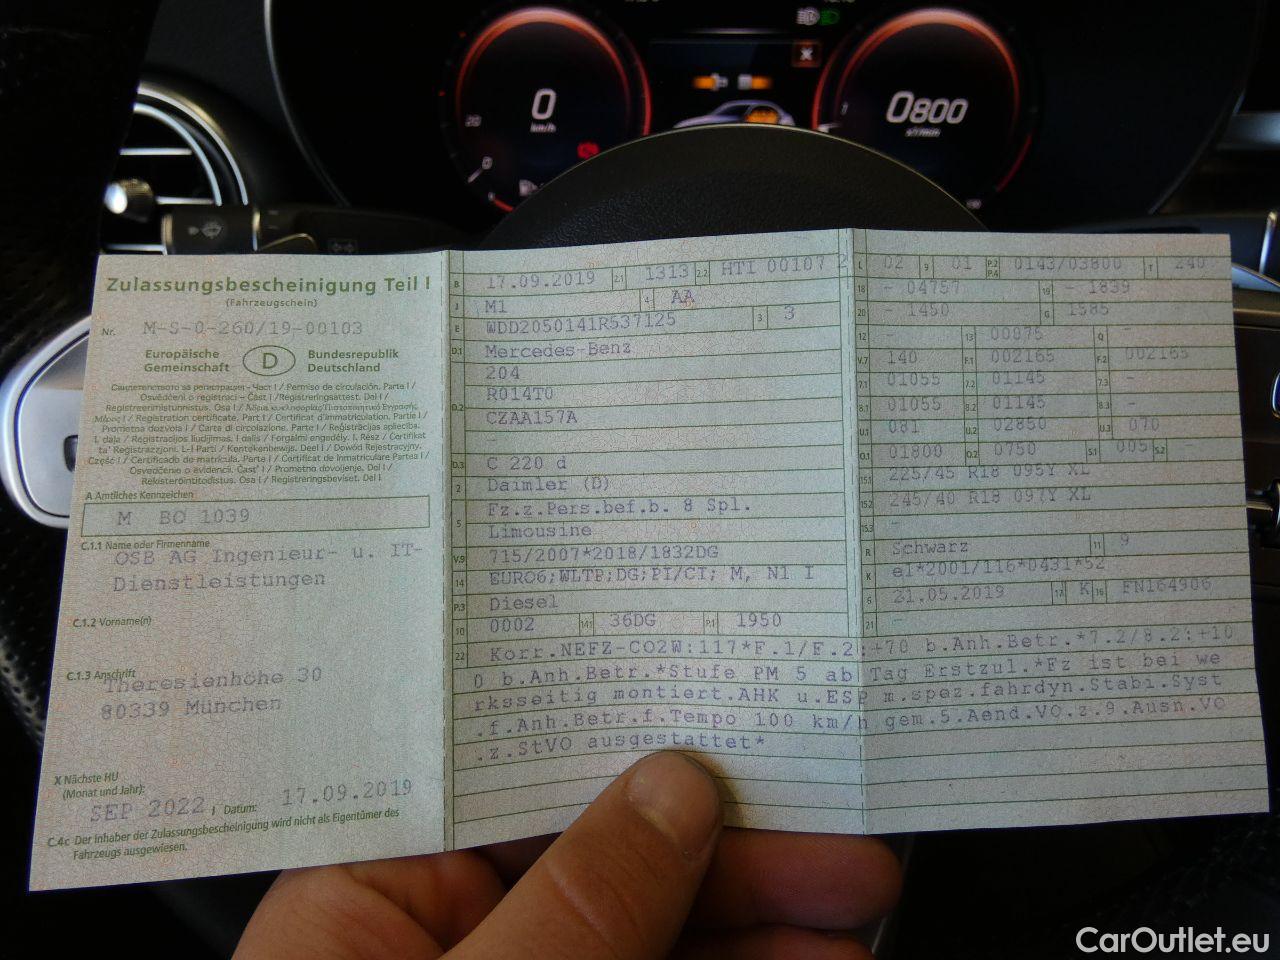 0
km/h
0800
x1/min
Zulassungsbescheinigung Teil I
(Fahrzeugschein)
Nr. M-S-0-260/19-00103
Europäische Gemeinschaft
D
Bundesrepublik Deutschland
Свидетелство за регистрация - Част I / Permiso de circulación. Parte I /
Osvědčení o registraci - Část I / Registreringsattest. Del I /
Registreerimistunnistus. Osa I /
Registration certificate. Part I / Certificat d'immatriculation. Partie I /
Prometna dozvola I / Carta di circolazione. Parte I / Reģistrācijas apliecība.
I. daļa / Registracijos liudijimas. I dalis / Forgalmi engedély. I. Rész / Ċertifikat
ta' Reġistrazzjoni. L-I Parti / Kentekenbewijs. Deel I / Dowód Rejestracyjny.
Część I / Certificado de matrícula. Parte I / Certificat de Inmatriculare Partea I /
Osvedčenie o evidencii. Časť I / Prometno dovoljenje. Del I /
Rekisteröintitodistus. Osa I / Registreringsbeviset. Del I
A Amtliches Kennzeichen
M BO 1039
C.1.1 Name oder Firmenname
OSB AG Ingenieur- u. IT-
Dienstleistungen
C.1.2 Vorname(n)
C.1.3 Anschrift
Theresienhöhe 30
80339 München
X Nächste HU
(Monat und Jahr):
SEP 2022 I Datum: 17.09.2019
C.4c Der Inhaber der Zulassungsbescheinigung wird nicht als Eigentümer des
Fahrzeugs ausgewiesen.
B 17.09.2019 2.1 1313 2.2 HTI 00107 2
J M1 4 AA
E WDD2050141R537125 3 3
D.1 Mercedes-Benz
204
D.2 R014T0
CZAA157A
-
D.3 C 220 d
2 Daimler (D)
5 Fz.z.Pers.bef.b. 8 Spl.
Limousine
V.9 715/2007*2018/1832DG
14 EURO6;WLTP;DG;PI/CI; M, N1 I
P.3 Diesel
10 0002 14.1 36DG P.1 1950
L 02 9 01 P.2 P.4 0143/03800 T 240
18 - 04757 19 - 1839
20 - 1450 G 1585
12 - 13 00075 Q -
V.7 140 F.1 002165 F.2 002165
7.1 01055 7.2 01145 7.3 -
8.1 01055 8.2 01145 8.3 -
U.1 081 U.2 02850 U.3 070
O.1 01800 O.2 0750 S.1 005 S.2
15.1 225/45 R18 095Y XL
15.2 245/40 R18 097Y XL
15.3 -
R Schwarz 11 9
K e1*2001/116*0431*52
6 21.05.2019 17 K 16 FN164906
21 -
22 Korr.NEFZ-CO2W:117*F.1/F.2:+70 b.Anh.Betr.*7.2/8.2:+10
0 b.Anh.Betr.*Stufe PM 5 ab Tag Erstzul.*Fz ist bei we
rksseitig montiert.AHK u.ESP m.spez.fahrdyn.Stabi.Syst
.f.Anh.Betr.f.Tempo 100 km/h gem.5.Aend.VO.z.9.Ausn.VO
.z.StVO ausgestattet*
CarOutlet.eu